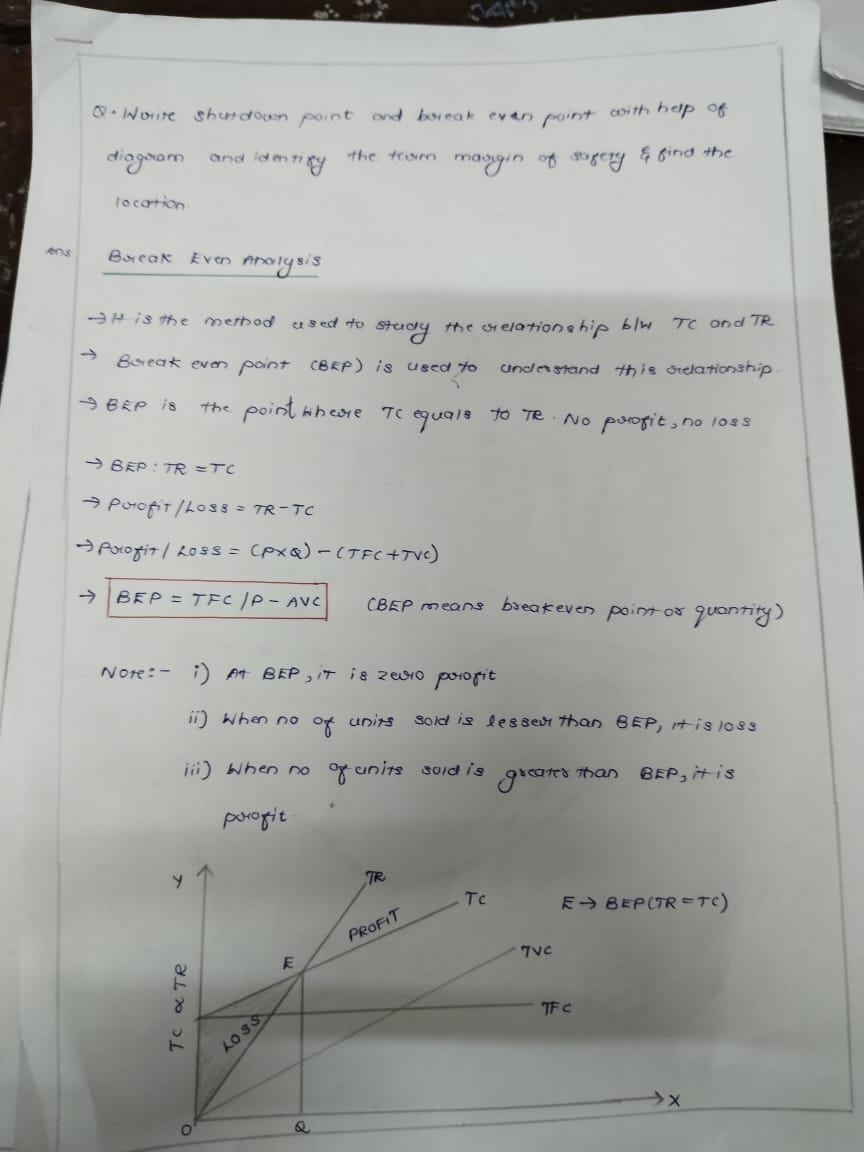 Q. Write shutdown point and break even point with help of
diagram and identify the term margin of safety & find the
location.
Ans
Break Even Analysis
→ It is the method used to study the relationship b/w TC and TR
→ Break even point (BEP) is used to understand this relationship.
→ BEP is the point where TC equals to TR. No profit, no loss
→ BEP : TR = TC
→ Profit / Loss = TR - TC
→ Profit / Loss = (P×Q) - (TFC + TVC)
→ BEP = TFC / P - AVC (BEP means breakeven point or quantity)
Note :- i) At BEP, it is zero profit
ii) When no of units sold is lesser than BEP, it is loss
iii) When no of units sold is greater than BEP, it is
profit.
Y
TR
TC
PROFIT
E → BEP (TR = TC)
E
TVC
TC & TR
TFC
LOSS
X
O
Q